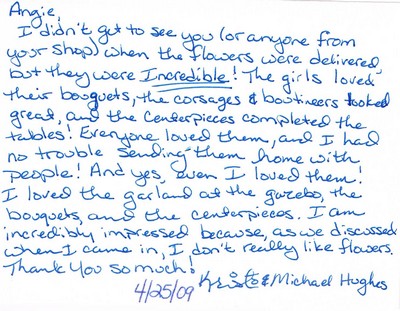 Angie,
I didn't get to see you (or anyone from
your shop) when the flowers were delivered,
but they were Incredible! The girls loved
their bouquets, the corsages & boutineers looked
great, and the centerpieces completed the
tables! Everyone loved them, and I had
no trouble sending them home with
people! And yes, even I loved them!
I loved the garland at the gazebo, the
bouquets, and the centerpieces. I am
incredibly impressed because, as we discussed
when I came in, I don't really like flowers.
Thank you so much!
& Michael Hughes
4/25/09